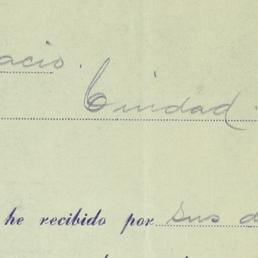 acio.
Ciudad.
he recibido por sus d